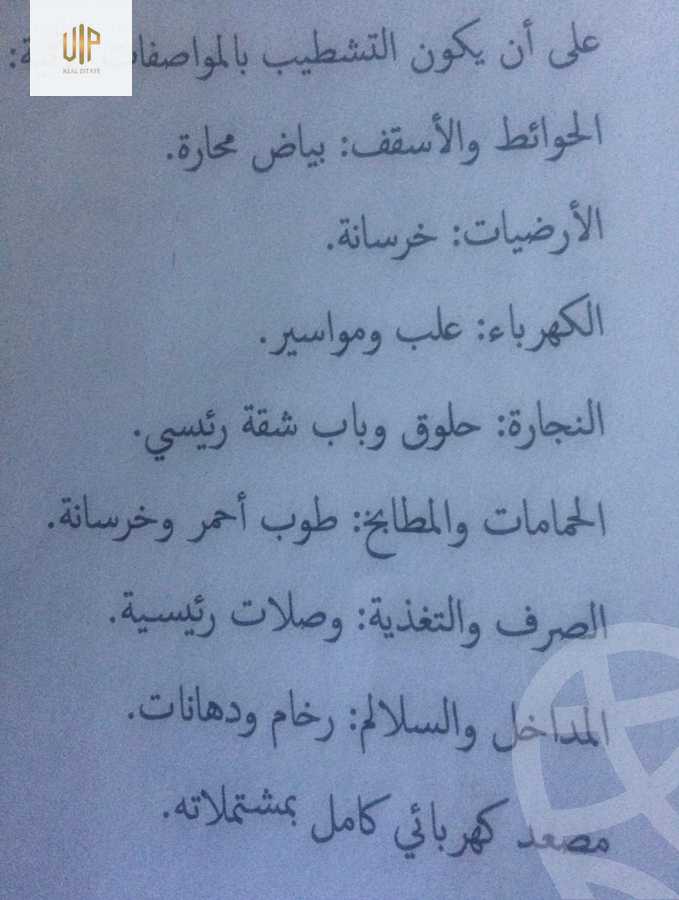 VIP
REAL ESTATE
على أن يكون التشطيب بالمواصفات
الحوائط والأسقف: بياض محارة.
الأرضيات: خرسانة.
الكهرباء: علب ومواسير.
النجارة: حلوق وباب شقة رئيسي.
الحمامات والمطابخ: طوب أحمر وخرسانة.
الصرف والتغذية: وصلات رئيسية.
المداخل والسلالم: رخام ودهانات.
مصعد كهربائي كامل بمشتملاته.